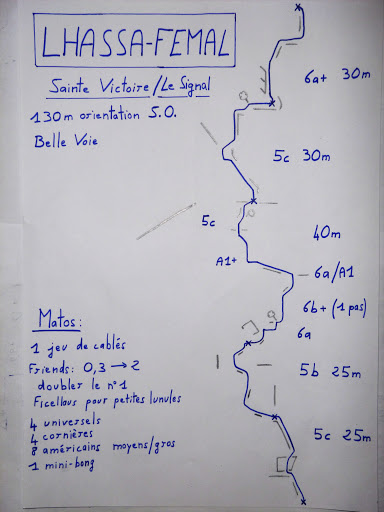 LHASSA-FEMAL
Sainte Victoire/Le Signal
130m orientation S.O.
Belle Voie
6a+ 30m
5c 30m
5c
40m
A1+
6a/A1
6b+ (1 pas)
6a
5b 25m
5c 25m
Matos:
1 jeu de cablés
Friends: 0,3 → 2
doubler le n°1
Ficellous pour petites lunules
4 universels
4 cornières
8 américains moyens/gros
1 mini-bong